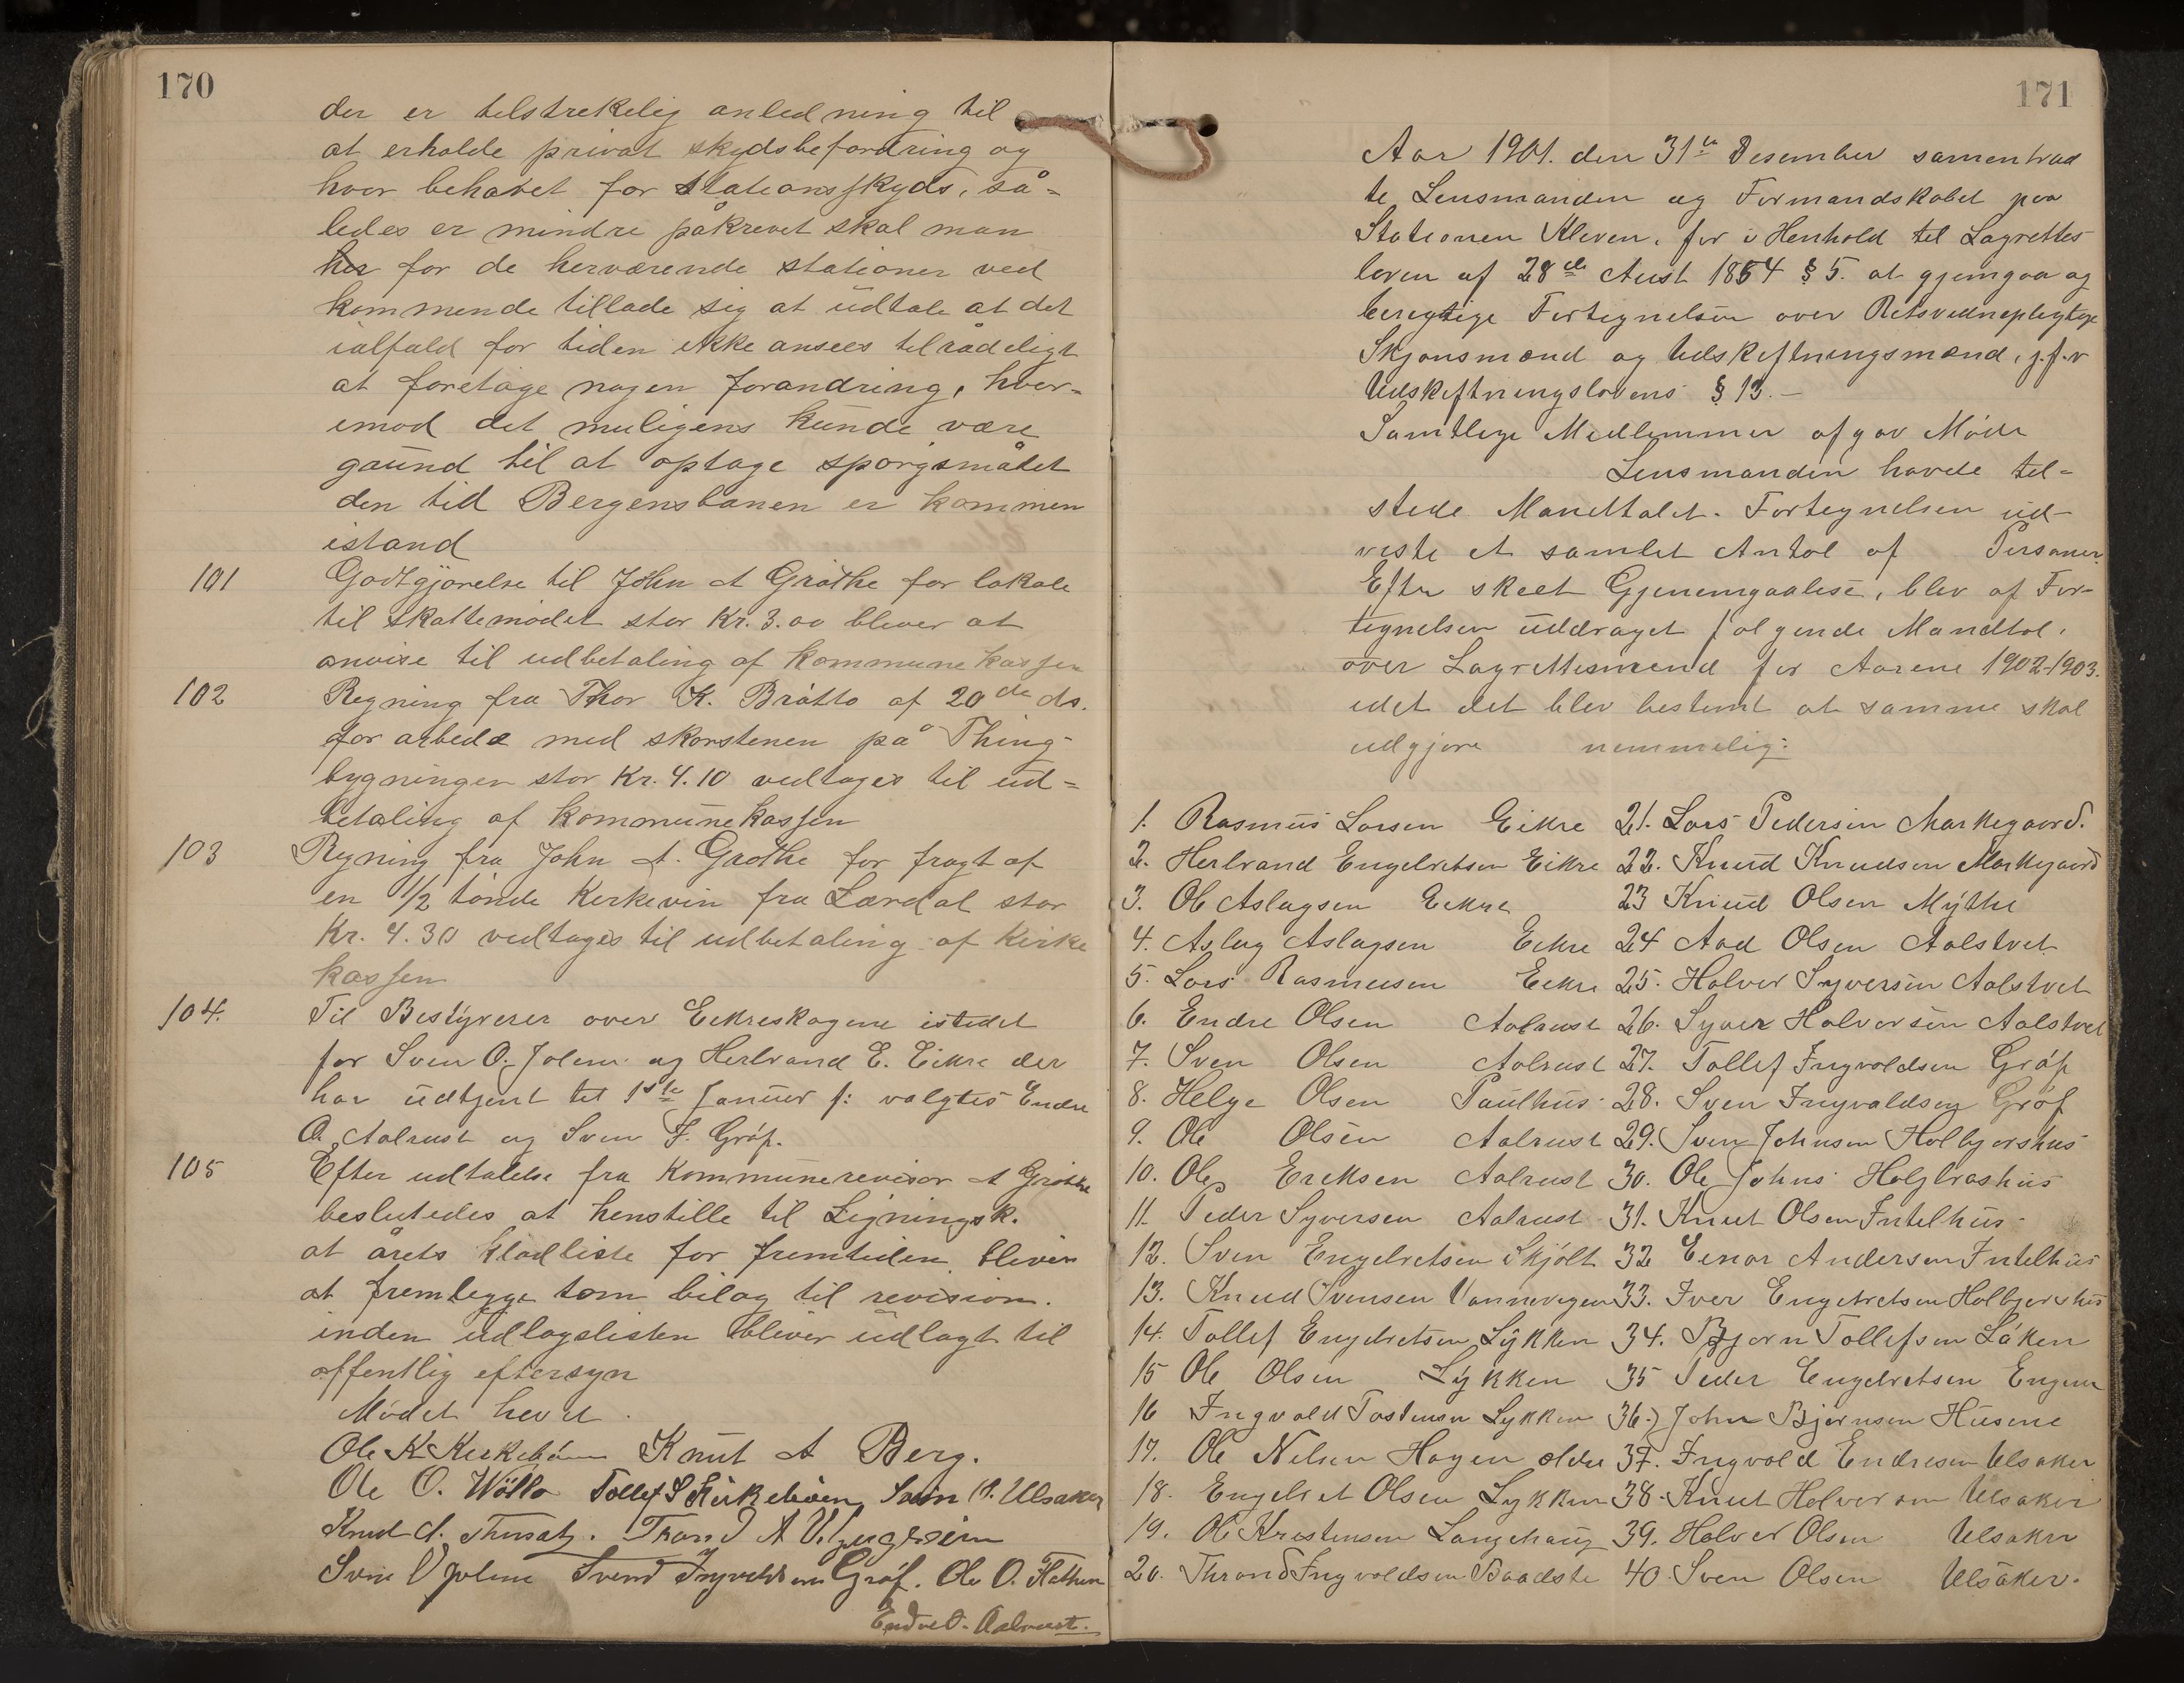 170
der er tilstrekelig anledning til
at erholde privat skydsbefordring og
hvor behovet for Stationsskyds, så-
ledes er mindre påkrevet skal man
her for de herværende stationer ved
kommende tillade sig at udtale at det
ialfald for tiden ikke ansees tilrådeligt
at foretage nogen forandring, hver-
imod det muligens kunde være
gound til at optage sporgsmålet
den tid Bergensbanen er kommen
istand
101 Godtgjörelse til John A Gröthe for lokale
til skattemödet stor Kr. 3.00 bliver at
anvise til udbetaling af kommunekassen
102 Regning fra Thor K. Bråtto af 20de ds.
for arbede med skorstenen på Thing-
bygningen stor Kr. 4.10 vedtages til ud-
betaling af kommunekassen
103 Regning fra John A. Grøthe for fragt af
en 1/2 tönde Kerkevin fra Lærdal stor
Kr. 4.30 vedtages til udbetaling af Kirke
kassen
104. Til Bestyrerer over Eekreskogene istedet
for Sven O. Jolem og Herbrand E. Eikre der
har udtjent til 1ste Januer f: valgtes Endre
O. Aalrust og Sven I. Gröf.
105 Efter udtalelse fra Kommunerevisor A Gröthe
beslutedes at henstille til Ligningsk.
at årets kladliste for fremtiden bliver
at fremlegge som bilag til revision.
inden udlagslisten bliver udlagt til
offentlig eftersyn
Mödet hevet.
Ole K Kirkeböen Knut A Berg.
Ole O. Wöllo Tollef S Kirkeböen Sven O. Ulsaker
Knud A. Trand A
Sven O Jolem Svend Ingvoldsen Gröf. Ole O.
Endre O. Aalrust.
171
Aar 1901. den 31te Desember samentraad
te Lensmanden og Formandskabet paa
Stationen Kleven, for i Henhold til Lagrettes
loven af 28de Aust 1854 § 5. at gjemgaa og
berigtige Fortegnelsen over Retsvidnepligtige
Skjønsmænd og Udskiftningsmænd, j.f.r
Udskiftningslovens § 13.-
Samtlige Medlemmer afgav Møde
Lensmanden havde til-
stede Mandtalet. Fortegnelsen ud-
viste et samlet Antal af Personer.
Efter skeet Gjenemgaalese, blev af For-
tegnelsen uddraget følgende Mandtal,
over Lagrettesmend for Aarene 1902-1903.
idet det blev bestemt at samme skal
udgjøre nemmelig:
1. Rasmus Larsen Eikre 21. Lars Pedersen Markegaard.
2. Herbrand Engebretsen Eikre 22. Knud Knudsen Markegaard
3. Ole Aslagsen Eekre 23 Knud Olsen Mythe
4. Aslag Aslagsen Eekre 24 Aad Olsen Aalstvet
5. Lars Rasmusen Eekre 25. Halvor Syversen Aalstvet
6. Endre Olsen Aalrust 26. Syver Halvorsen Aalstvet
7. Sven Olsen Aalrust 27. Tollef Ingvoldsen Gröf
8. Helge Olsen Paulhus 28. Sven Ingvaldsen Gröf
9. Ole Olsen Aalrust 29. Sven Johnsen Holbjørshus
10. Ole Ereksen Aalrust 30. Ole Johns
11. Peder Syversen Aalrust 31. Knut Olsen Intelhus
12. Sven Engebretsen Skjölt 32 Einar Andersen Intelhus
13. Knud Svensen 33. Iver Engebretsen Holbjørshus
14. Tollef Engebretsen Lykken 34. Bjørn Tollefsen Låken
15 Ole Olsen Lykken 35 Peder Engebretsen Engene
16 Ingvald Tostensen Lykken 36.) John Bjørnsen Husene
17. Ole Nelsen Hagen eldre 37. Ingvold Endresen Ulsaker
18. Engebret Olsen Lykken 38. Knut Halvorsen Ulsaker
19. Ole Kristensen Langehaug 39. Halvor Olsen Ulsaker
20. Thrond Ingvoldsen Baadste 40. Sven Olsen Ulsaker.